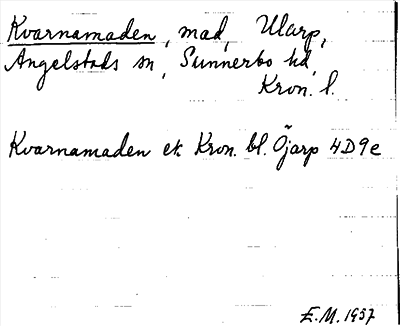 Kvarnamaden, mad, Ularp,
Angelstads sn, Sunnerbo hd,
Kron. l.
Kvarnamaden ek. Kron. bl. Öjarp 4D9e
E.M. 1957